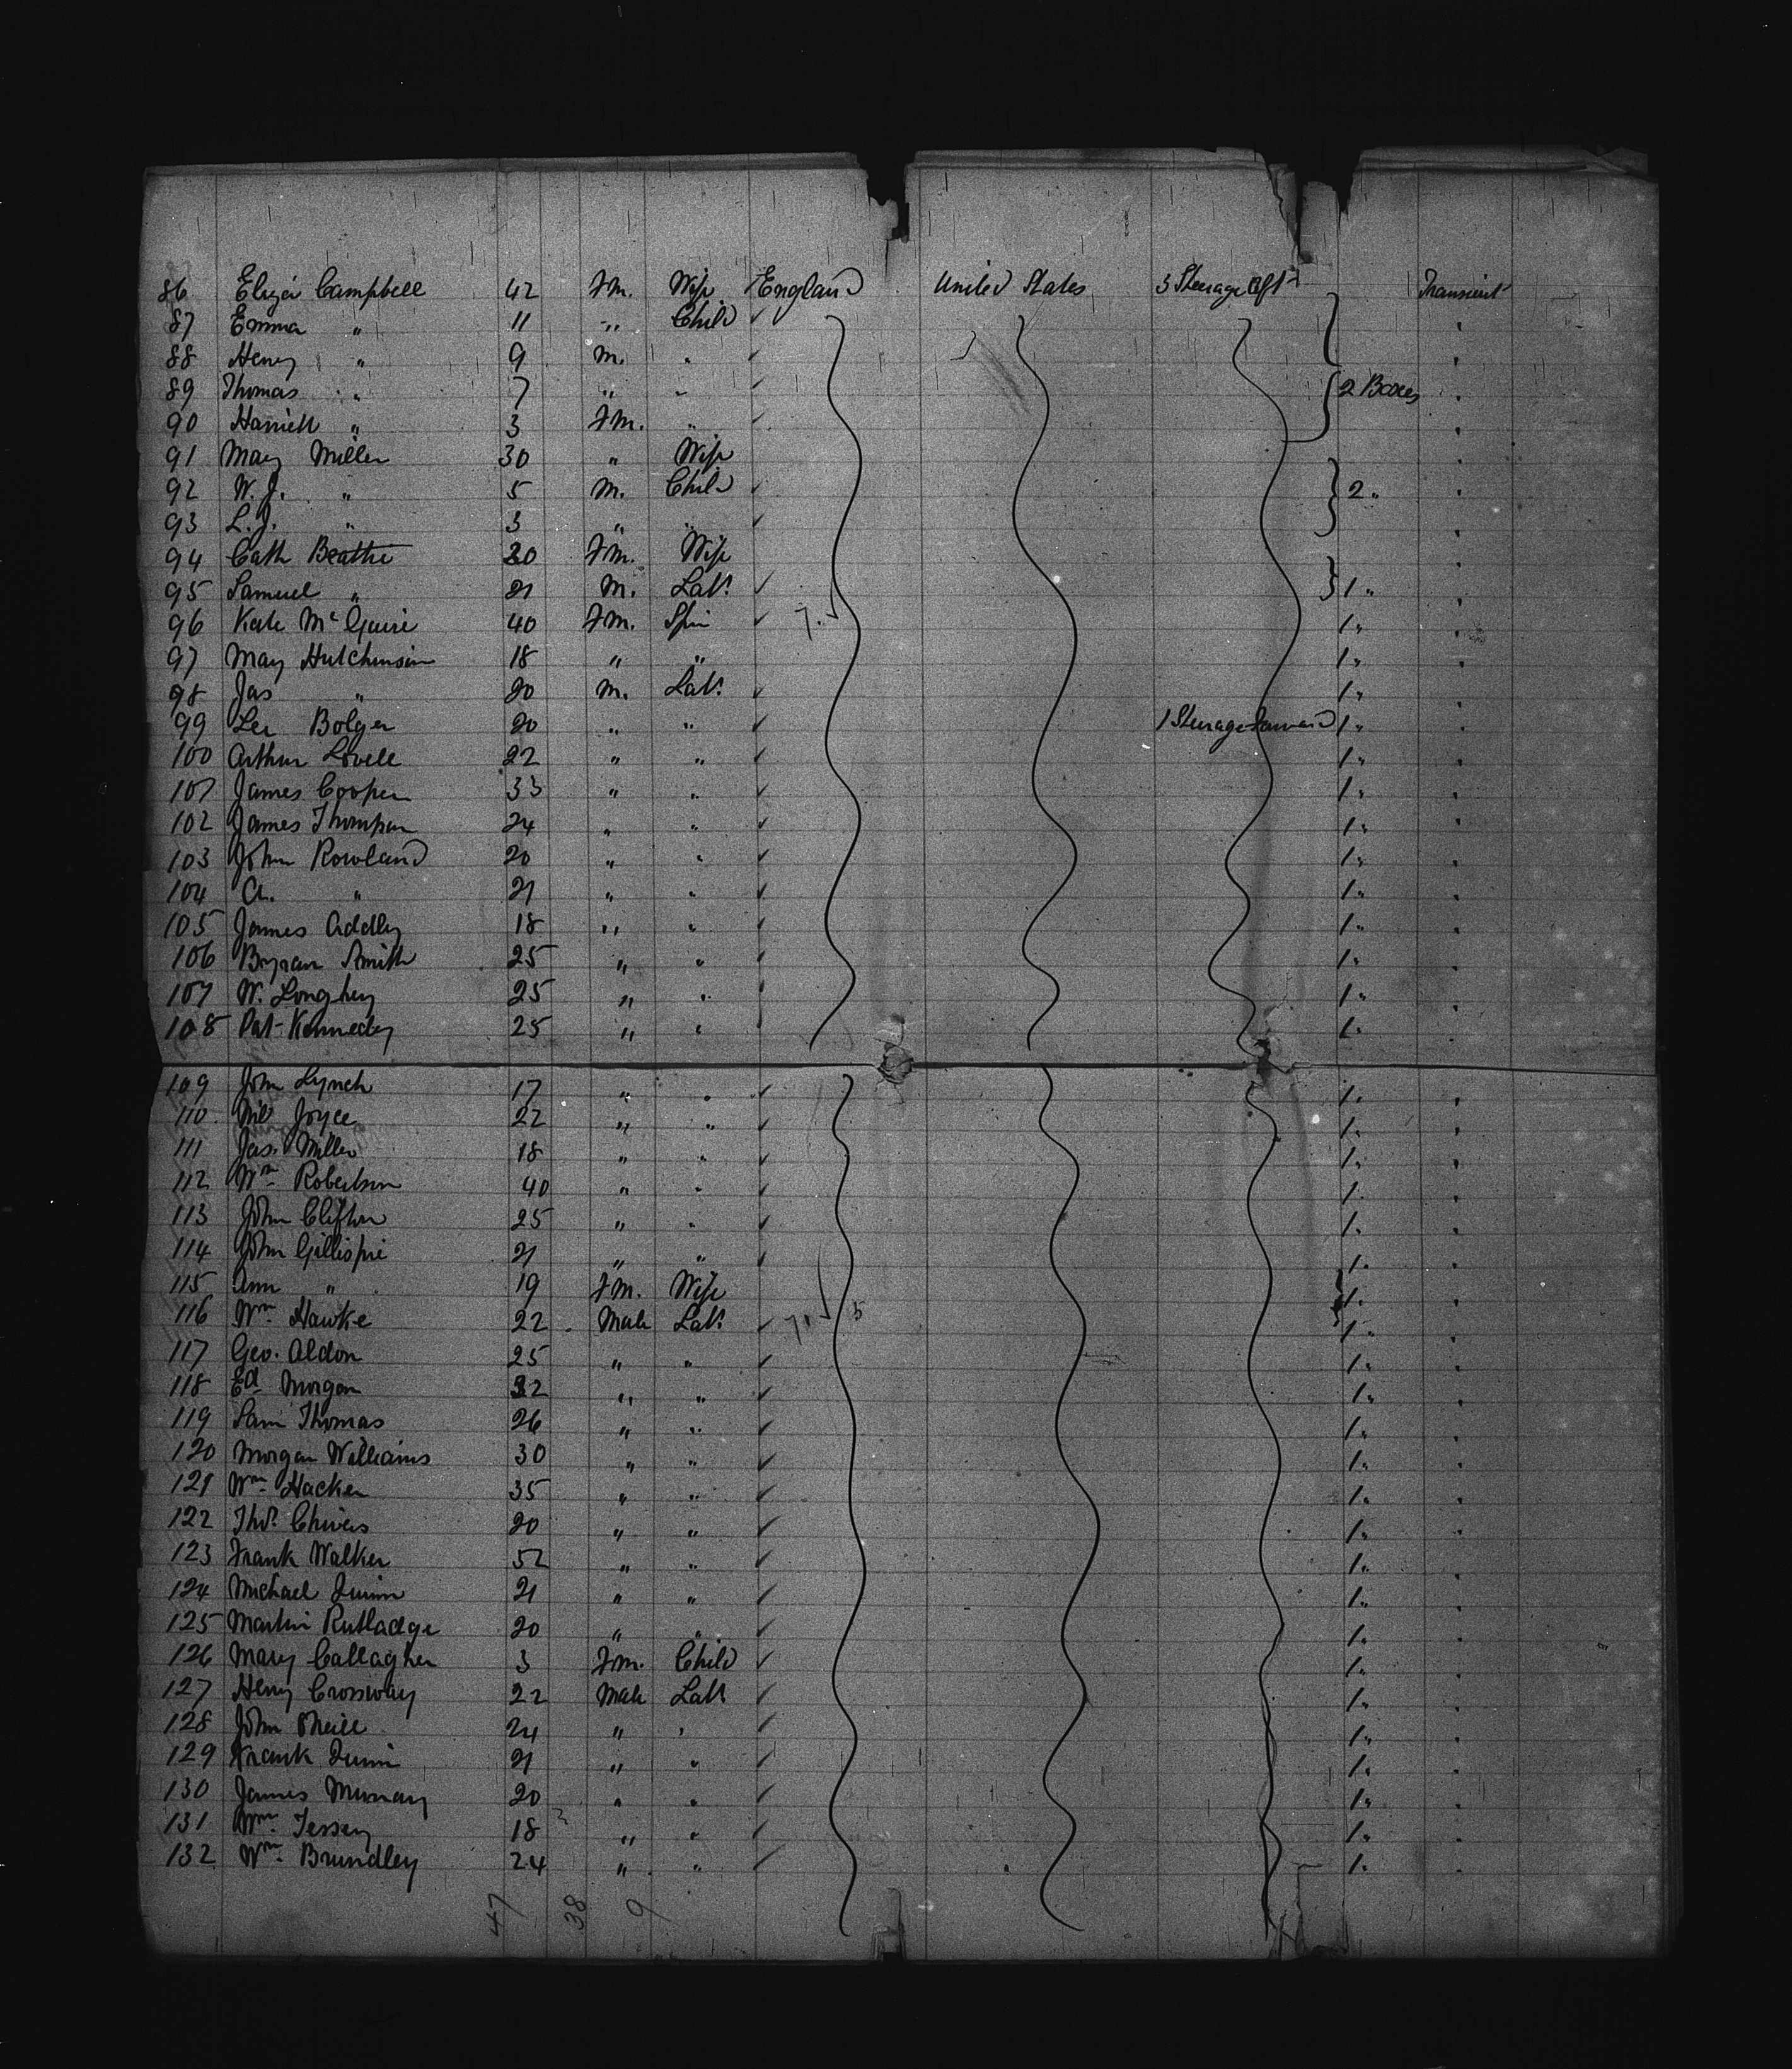 86 Eliza Campbell 42 Fm. Wife England United States 3 Steerage Aft Transient
87 Emma " 11 " Child "
88 Heny " 9 m. " "
89 Thomas " 7 " " 2 Boxes "
90 Harriett " 3 Fm. " "
91 Mary Miller 30 " Wife "
92 W. J. " 5 m. Child 2 " "
93 L. J. " 3 " " "
94 Cath Beattie 20 Fm. Wife "
95 Samuel " 21 m. Labr 1 " "
96 Kate McGuire 40 Fm. Spin 1 " "
97 May Hutchinson 18 " " 1 " "
98 Jas " 20 m. Labr 1 " "
99 Lee Bolger 20 " " 1 Steerage Forward 1 " "
100 Arthur Lovell 22 " " 1 " "
101 James Cooper 33 " " 1 " "
102 James Thompson 24 " " 1 " "
103 John Rowland 20 " " 1 " "
104 A. " 21 " " 1 " "
105 James Addley 18 " " 1 " "
106 Bryran Smith 25 " " 1 " "
107 W. Longhey 25 " " 1 " "
108 Pat Kennedy 25 " " 1 "
109 John Lynch 17 " " 1 " "
110 Joyce 22 " " 1 " "
111 Jas. Miller 18 " " 1 " "
112 Wm Robertson 40 " " 1 " "
113 John Clifton 25 " " 1 " "
114 John Gillispie 21 " " 1 " "
115 Ann " 19 Fm. Wife 1 " "
116 Wm Hawke 22 Male Labr 1 " "
117 Geo. Aldon 25 " " 1 " "
118 Ed Morgan 32 " " 1 " "
119 Sam Thomas 26 " " 1 " "
120 Morgan Williams 30 " " 1 " "
121 Wm Hacker 35 " " 1 " "
122 Thos. Chivers 20 " " 1 " "
123 Frank Walker 52 " " 1 " "
124 Michael Quinn 21 " " 1 " "
125 Martin Rutladge 20 " " 1 " "
126 Mary Callagher 3 Fm. Child 1 " "
127 Heny Crossway 22 Male Labr 1 " "
128 John ONeill 24 " " 1 " "
129 Frank Quinn 21 " " 1 " "
130 James Murray 20 " " 1 " "
131 Wm. Tessey 18 " " 1 " "
132 Wm. Brundley 24 " " 1 " "
47 38 9